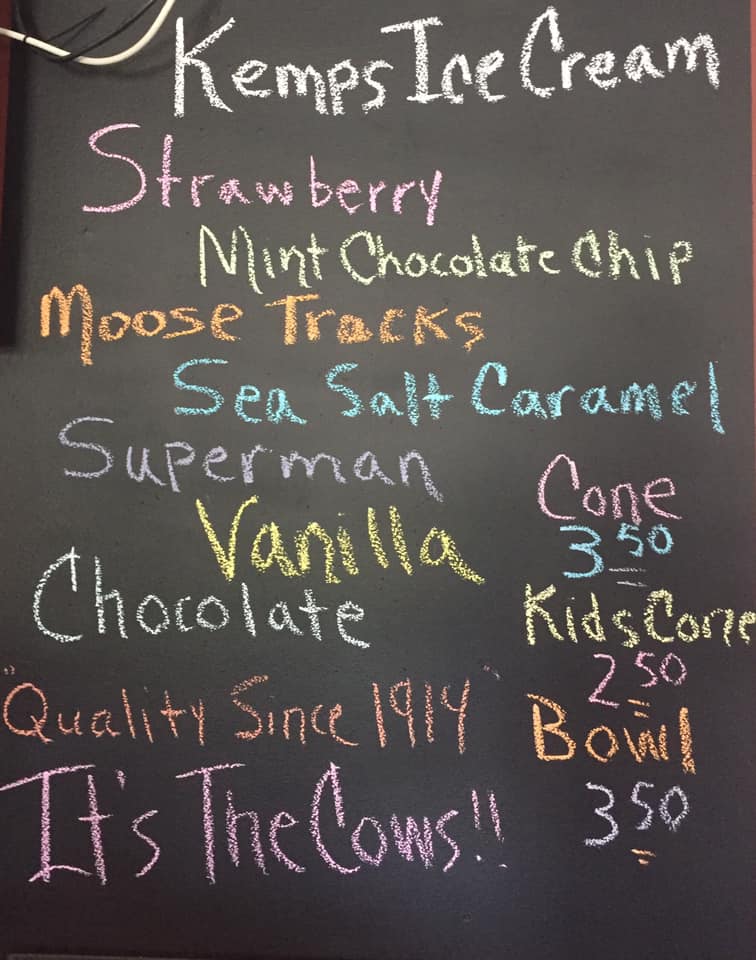 Kemps Ice Cream
Strawberry
Mint Chocolate Chip
Moose Tracks
Sea Salt Caramel
Superman
Vanilla
Chocolate
"Quality Since 1914"
It's The Cows!!
Cone
3 50
Kids Cone
2 50
Bowl
3 50